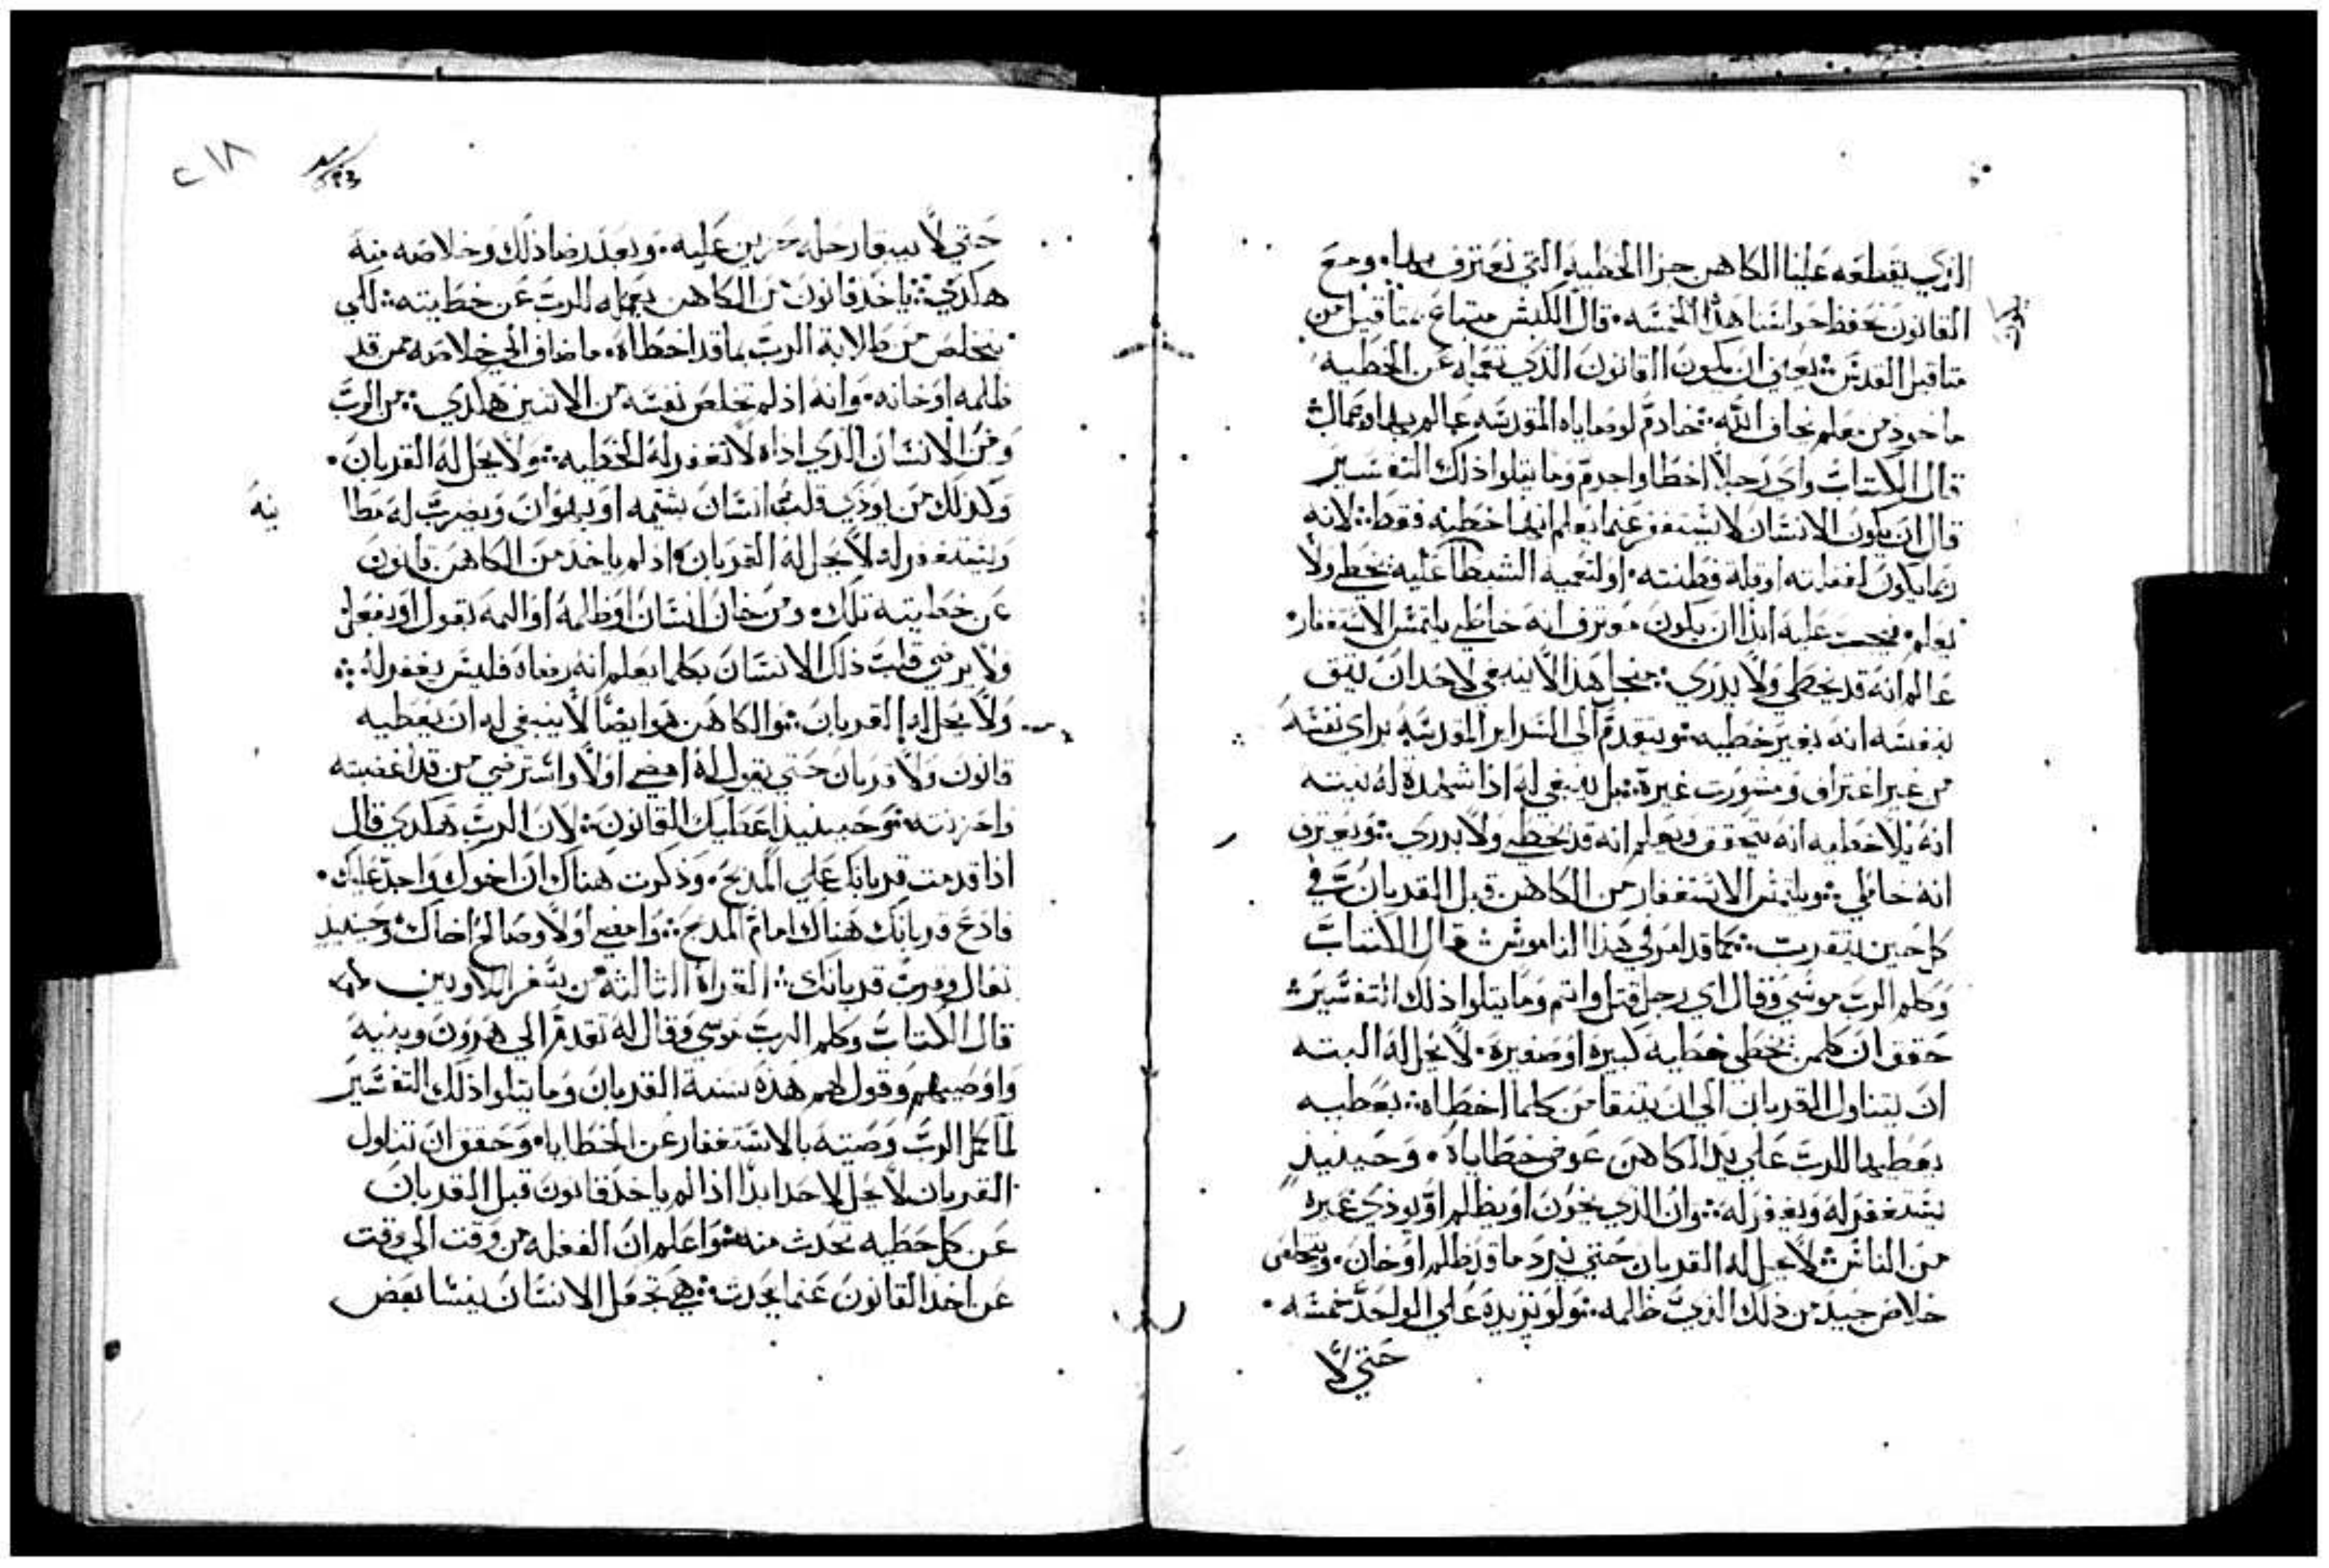 الذي يقطعه علينا الكاهن جزا الخطيه التي نعترف بها. ومع
القانون نحفظ حواسنا هذا الخمسه. قال الكبش مبتاع بمثاقيل من
مثاقيل القدس: يعني ان يكون القانون الذي نعمله عن الخطيه
ماخوذ من معلم يخاف الله: خادم لوصاياه المقدسه عالم بها وعمال
قال الكتاب واي رجلاً اخطا واجرم وما يتلوا ذلك التفسير
قال ان يكون الانسان لا يستغفر عنما يعلم انها خطيه فقط: لانه
ربما يكون لغفلته او قلة فطنته. او لتعميه الشيطا عليه يخطي ولا
يعلم. فيجب عليه ابداً ان يكون معترف انه خاطي يلتمس الاستغفار.
عالم انه قد يخطي ولا يدري: منجل هذا لا ينبغي لاحد ان يثق
بنفسه انه بغير خطيه: ويتقدم الي السراير المقدسه براي نفسه
من غير اعتراف ومشورت غيره: بل ينبغي له اذا شهدة له نيته
انه بلا خطيه انه يتحقق ويعلم انه قد يخطي ولا يدري: ويعترف
انه خاطي: ويلتمس الاستغفار من الكاهن قبل القربان في
كل حين يتقرب: كما قد امر في هذا الناموس قال الكتاب
وكلم الرب موسي وقال اي رجل قتل واثم وما يتلوا ذلك التفسير
حقق ان كلمن يخطي خطيه كبيره او صغيره. لا يحل له البته
ان يتناول القربان الي ان يتنقا من كلما اخطاه: بعطيه
يعطيها للرب علي يد الكاهن عوض خطاياه. وحينيذ
يستغفر له ويغفر له: وان الذي يخون او يظلم او يوذي غيره
من الناس: لا يحل له القربان حتي يرد ما قد ظلم او خان. ويتخلص
خلاص جيد من ذلك الذي ظلمه: ولو يزيده علي الواحد خمسه.
حتي لا
٢١٨
حتي لا يبقا رجله حزين عليه. وبعد رضا ذلك وخلاصه منه
هكذي: ياخذ قانون من الكاهن يعمله للرب عن خطيته: لكي
يتخلص من طالابة الرب بما قد اخطاه. ما ضاف الي خلاصه من قد
ظلمه او خانه. وانه اذ لم يخلص نفسه من الاثنين هكذي: من الرب
ومن الانسان الذي اذاه لا تغفر له الخطيه: ولا يحل له القربان.
وكذلك من يوذي قلب انسان بشتمه او بهوان ويضرب له مطا
نيه
ويستغفر له لا يحل له القربان واذ لم ياخذ من الكاهن قانون
عن خطيته تلك. ومن خان انسان او ظلمه او المه بقول او بفعل
ولا يرضي قلب ذلك الانسان بكلما يعلم انه رضاه فليس يغفر له:
ولا يحل له القربان: والكاهن هو ايضاً لا ينبغي له ان يعطيه
قانون ولا قربان حتي يقول له امضي اولاً واسترضي من قد اغضبته
واحزنته: وحينيذ اعطيك القانون: لان الرب هكذي قال
اذا قدمت قربانك علي المذبح. وذكرت هناك ان اخوك واجد عليك.
فادع قربانك هناك امام المذبح: وامضي اولاً وصالح اخاك: وحينيذ
تعال وقرب قربانك: القراة الثالثه من سفر اللاويين
قال الكتاب وكلم الرب موسي وقال له تقدم الي هرون وبنيه
واوصيهم وقول لهم هذه سنة القربان وما يتلوا ذلك التفسير
لما كمل الرب وصيته بالاستغفار عن الخطايا. وحقق ان تناول
القربان لا يحل لاحد ابداً اذا لم ياخذ قانون قبل القربان
عن كل خطيه تحدث منه: واعلم ان الغفله من وقت الي وقت
عن اخذ القانون عنما يحدث: هي تجعل الانسان ينسا بعض